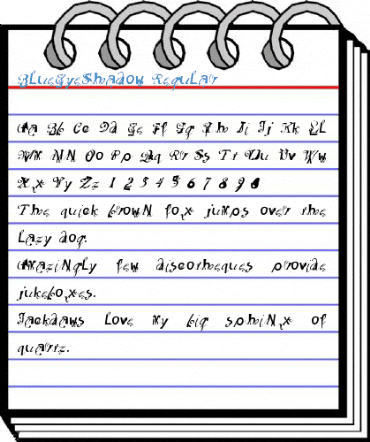 BlueEyeShadow Regular
Aa Bb Cc Dd Ee Ff Gg Hh Ii Jj Kk Ll
Mm Nn Oo Pp Qq Rr Ss Tt Uu Vv Ww
Xx Yy Zz 1 2 3 4 5 6 7 8 9 0
The quick brown fox jumps over the
lazy dog.
Amazingly few discotheques provide
jukeboxes.
Jackdaws love my big sphinx of
quartz.